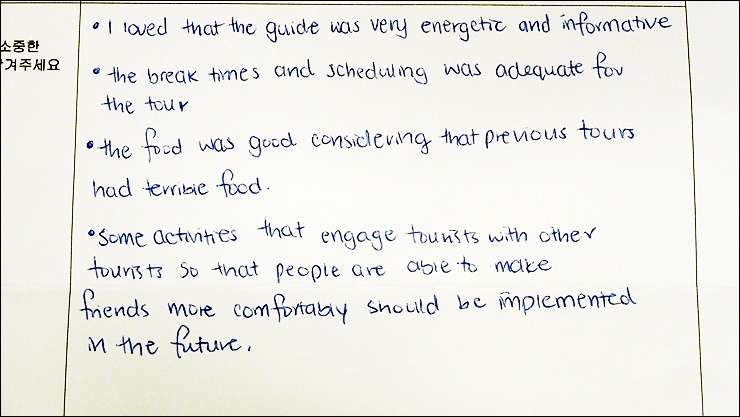 소중한
겨주세요
• I loved that the guide was very energetic and informative
• the break times and scheduling was adequate for
the tour
• the food was good considering that previous tours
had terrible food.
• Some activities that engage tourists with other
tourists so that people are able to make
friends more comfortably should be implemented
in the future.